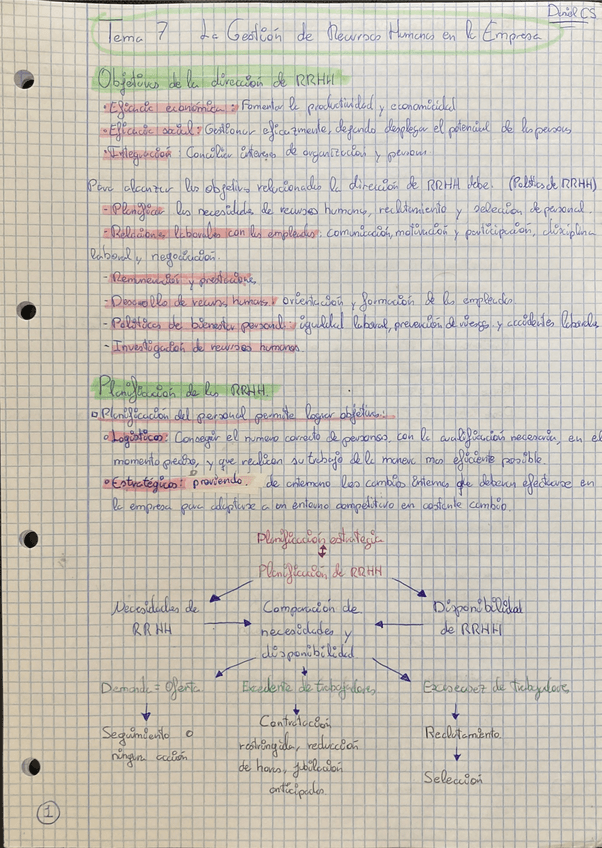 Daniel CS
Tema 7 La Gestión de Recursos Humanos en la Empresa
Objetivos de la dirección de RRHH
· Eficacia económica: Fomentar la productividad y economicidad
· Eficacia social: Gestionar eficazmente, dejando desplegar el potencial de las personas
· Integración: Conciliar intereses de organización y personas
Para alcanzar los objetivos relacionados la dirección de RRHH debe: (Políticas de RRHH)
- Planificar las necesidades de recursos humanos, reclutamiento y selección de personal.
- Relaciones laborales con los empleados: comunicación, motivación y participación, disciplina
laboral y negociación.
- Remuneración y prestaciones
- Desarrollo de recursos humanos: orientación y formación de los empleados
- Políticas de bienestar personal: igualdad laboral, prevención de riesgos y accidentes laborales
- Investigación de recursos humanos
Planificación de los RRHH
Planificación del personal permite lograr objetivos:
Logísticos: Conseguir el numero correcto de personas, con la cualificación necesaria, en el
momento preciso, y que realicen su trabajo de la manera mas eficiente posible.
Estratégicos: previendo de antemano los cambios internos que deberan efectuarse en
la empresa para adaptarse a un entorno competitivo en costante cambio.
Planificación estrategica
Planificación de RRHH
Necesidades de
RRHH
Comparación de
necesidades y
disponibilidad
Disponibilidad
de RRHH
Demanda = Oferta
Excedente de trabajadores
Escasez de trabajadores
Seguimiento o
ninguna acción
Contratación
restringida, reducción
de horas, jubilación
anticipada
Reclutamiento
Selección
1